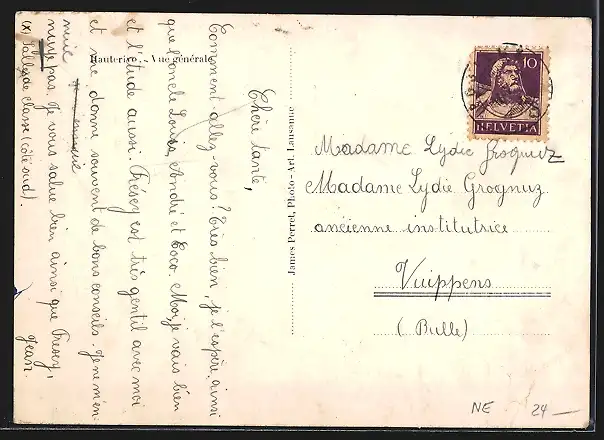 Hauterive. - Vue générale
Chère tante,
Comment allez-vous? Très bien, je l'espère, ainsi
que l'oncle Louis, André et Coco. Moi, je vais bien
et l'étude aussi. Frésey est très gentil avec moi
et me donne souvent de bons conseils. Je ne m'en-
nuie
ennuie
nuye pas. Je vous salue bien ainsi que Fresey,
Jean.
(X) Salle de classe (côté sud).
James Perret, Photo-Art, Lausanne
10
HELVETIA
Madame Lydie Grognuz
Madame Lydie Grognuz
ancienne institutrice
Vuippens
(Bulle)
NE 24-